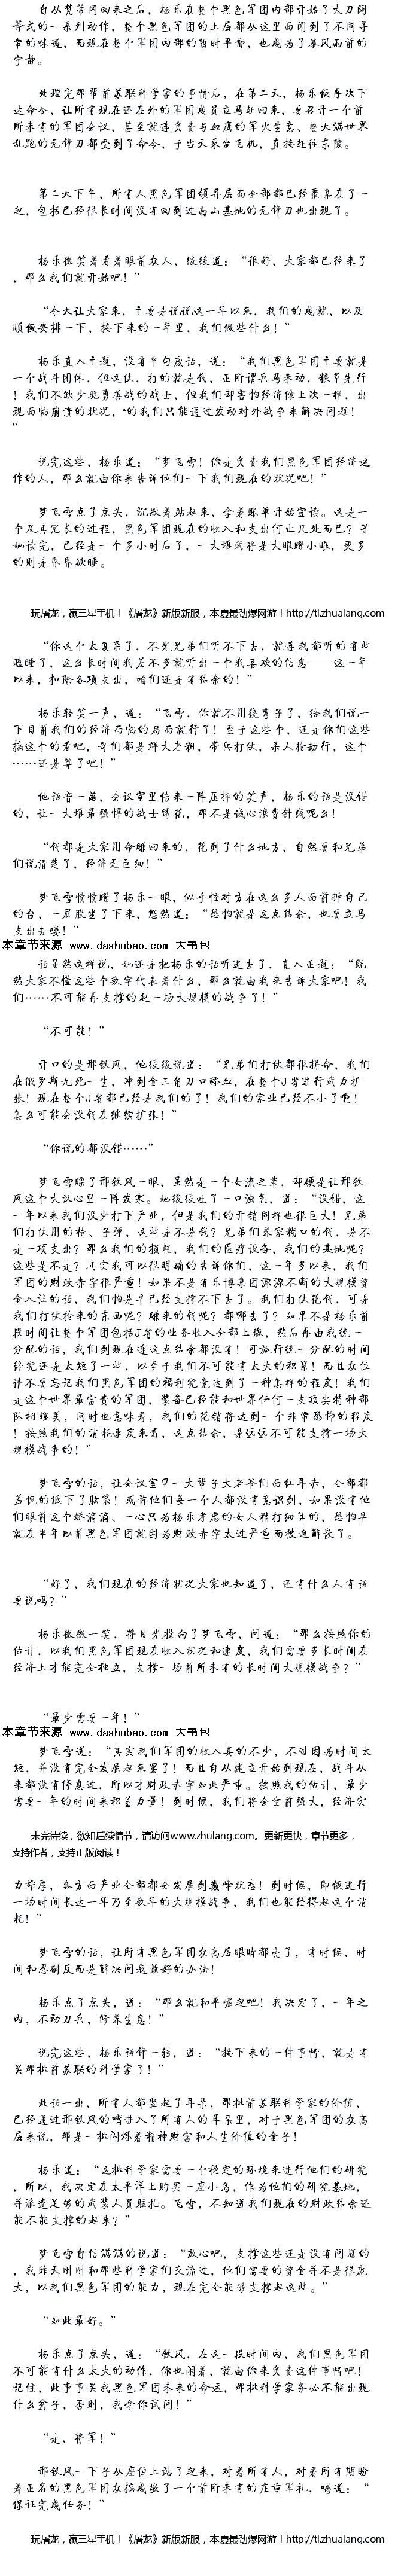 自从梵蒂冈回来之后，杨乐在整个黑色军团内部开始了大刀阔
斧式的一系列动作，整个黑色军团的上层都从这里面闻到了不同寻
常的味道，而现在整个军团内部的暂时平静，也成为了暴风雨前的
宁静。
处理完那帮前苏联科学家的事情后，在第二天，杨乐便再次下
达命令，让所有现还在外的军团成员立马赶回来，要召开一个前
所未有的军团会议，甚至就连负责与血鹰的军火生意、整天满世界
乱跑的无锋刀都受到了命令，于当天乘坐飞机，直接赶往东陵。
第二天下午，所有人黑色军团领导层面全部都已经聚集在了一
起，包括已经很长时间没有回到过南山基地的无锋刀也出现了。
杨乐微笑着看着眼前众人，缓缓道：“很好，大家都已经来了
，那么我们就开始吧！”
“今天让大家来，主要是说说这一年以来，我们的成就，以及
顺便安排一下，接下来的一年里，我们做些什么！”
杨乐直入主题，没有半句废话，道：“我们黑色军团主要就是
一个战斗团体，但这仗，打的就是钱，正所谓兵马未动，粮草先行
！我们不缺少死勇善战的战士，但我们却害怕经济像上次一样，出
现面临崩溃的状况，的我们只能通过发动对外战争来解决问题！
”
说完这些，杨乐道：“梦飞雪！你是负责我们黑色军团经济运
作的人，那么就由你来告诉他们一下我们现在的状况吧！”
梦飞雪点了点头，沉默着站起来，拿着账单开始宣读。这是一
个及其冗长的过程，黑色军团现在的收入和支出何止几处而已？等
她读完，已经是一个多小时后了，一大堆武将是大眼瞪小眼，更多
的则是昏昏欲睡。
玩屠龙，赢三星手机！《屠龙》新版新服，本夏最劲爆网游！http://tl.zhulang.com
“你这个太复杂了，不光兄弟们听不下去，就连我都听的有些
瞌睡了，这么长时间我差不多就听出一个我喜欢的信息——这一年
以来，扣除各项支出，咱们还是有结余的！”
杨乐轻笑一声，道：“飞雪，你就不用绕弯子了，给我们说一
下目前我们的经济面临的局面就行了！至于这些个，还是你们这些
搞这个的看吧，哥们都是群大老粗，带兵打仗，杀人抢劫行，这个
……还是算了吧！”
他话音一落，会议室里传来一阵压抑的笑声，杨乐的话是没错
的，让一大堆最强悍的战士绣花，那不是诚心浪费针线呢么！
“钱都是大家用命赚回来的，花到了什么地方，自然要和兄弟
们说清楚了，经济无巨细！”
梦飞雪愤愤瞪了杨乐一眼，似乎怪对方在这么多人面前拆自己
的台，一屁股坐了下来，悠然道：“恐怕就是这点结余，也要立马
支出去喽！”
本章节来源 www.dashubao.com 大书包
话虽然这样说，她还是把杨乐的话听进去了，直入正题：“既
然大家不懂这些个数字代表着什么，那么就由我来告诉大家吧！我
们……不可能再支撑的起一场大规模的战争了！”
“不可能！”
开口的是邢铁风，他缓缓说道：“兄弟们打仗都很拼命，我们
在俄罗斯九死一生，冲到金三角刀口舔血，在整个J省进行武力扩
张！现在整个J省都已经是我们的了！我们的家业已经不小了啊！
怎么可能会没钱在继续扩张！”
“你说的都没错……”
梦飞雪瞟了邢铁风一眼，虽然是一个女流之辈，却硬是让邢铁
风这个大汉心里一阵发寒。她缓缓吐了一口浊气，道：“没错，这
一年以来我们没少打下产业，但是我们的开销同样也很巨大！兄弟
们打仗用的枪、子弹，这些是不是钱？兄弟们养家糊口的钱，是不
是一项支出？那么我们的损耗，我们的医疗设备，我们的基地呢？
这些是不是？其实我可以很明确的告诉你们，这一年多以来，我们
军团的财政赤字很严重！如果不是有乐博集团源源不断的大规模资
金入注的话，我们怕是早已经支撑不下去了。我们打仗花钱，可是
我们打仗抢来的东西呢？赚来的钱呢？都哪去了？如果不是杨乐前
段时间让整个军团包括J省的业务收入全部上缴，然后再由我统一
分配的话，我们到现在连这点结余都没有！可施行统一分配的时间
终究还是太短了一些，以至于我们不可能有太大的积累！而且众位
请不要忘记我们黑色军团的福利究竟达到了一种怎样的程度！我们
是这个世界最富贵的军团，装备已经能和世界任何一支顶尖特种部
队相媲美，同时也意味着，我们的花销将达到一个非常恐怖的程度
！按照我们的消耗速度来看，这点结余，是远远不可能支撑一场大
规模战争的！”
梦飞雪的话，让会议室里一大帮子大老爷们面红耳赤，全部都
羞愧的低下了脑袋！或许他们每一个人都没有意识到，如果没有他
们眼前这个娇滴滴、一心只为杨乐考虑的女人精打细算的，恐怕早
就在半年以前黑色军团就因为财政赤字太过严重而被迫解散了。
“好了，我们现在的经济状况大家也知道了，还有什么人有话
要说吗？”
杨乐微微一笑，将目光投向了梦飞雪，问道：“那么按照你的
估计，以我们黑色军团现在收入状况和速度，我们需要多长时间在
经济上才能完全独立，支撑一场前所未有的长时间大规模战争？”
“最少需要一年！”
本章节来源 www.dashubao.com 大书包
梦飞雪道：“其实我们军团的收入真的不少，不过因为时间太
短，并没有完全发展起来罢了！而且自从建立开始到现在，战斗从
来都没有停息过，所以才财政赤字如此严重。按照我的估计，最少
需要一年的时间来积蓄力量！到时候，我们将会空前强大，经济实
未完待续，欲知后续情节，请访问www.zhulang.com。更新更快，章节更多，
支持作者，支持正版阅读！
力雄厚，各方面产业全部都会发展到巅峰状态！到时候，即便进行
一场时间长达一年乃至数年的大规模战争，我们也能经得起这个消
耗！”
梦飞雪的话，让所有黑色军团众高层眼睛都亮了，有时候，时
间和忍耐反而是解决问题最好的办法！
杨乐点了点头，道：“那么就和平崛起吧！我决定了，一年之
内，不动刀兵，修养生息！”
说完这些，杨乐话锋一转，道：“接下来的一件事情，就是有
关那批前苏联的科学家了！”
此话一出，所有人都竖起了耳朵，那批前苏联科学家的价值，
已经通过邢铁风的嘴进入了所有人的耳朵里，对于黑色军团的众高
层来说，那是一批闪烁着精神财富和人生价值的金子！
杨乐道：“这批科学家需要一个稳定的环境来进行他们的研究
，所以，我决定在太平洋上购买一座小岛，作为他们的研究基地，
并派遣足够的武装人员驻扎。飞雪，不知道我们现在的财政结余还
能不能支撑的起来？”
梦飞雪自信满满的说道：“放心吧，支撑这些还是没有问题的
，我昨天刚刚和那些科学家们交流过，他们需要的资金并不是很庞
大，以我们黑色军团的能力，现在完全能够支撑起这些。”
“如此最好。”
杨乐点了点头，道：“铁风，在这一段时间内，我们黑色军团
不可能有什么太大的动作，你也闲着，就由你来负责这件事情吧！
记住，此事事关我黑色军团未来的命运，那批科学家务必不能出现
什么岔子，否则，我拿你试问！”
“是，将军！”
邢铁风一下子从座位上站了起来，对着所有人，对着所有期盼
着正名的黑色军团众搞成敬了一个前所未有的庄重军礼，喝道：“
保证完成任务！”
玩屠龙，赢三星手机！《屠龙》新版新服，本夏最劲爆网游！http://tl.zhulang.com